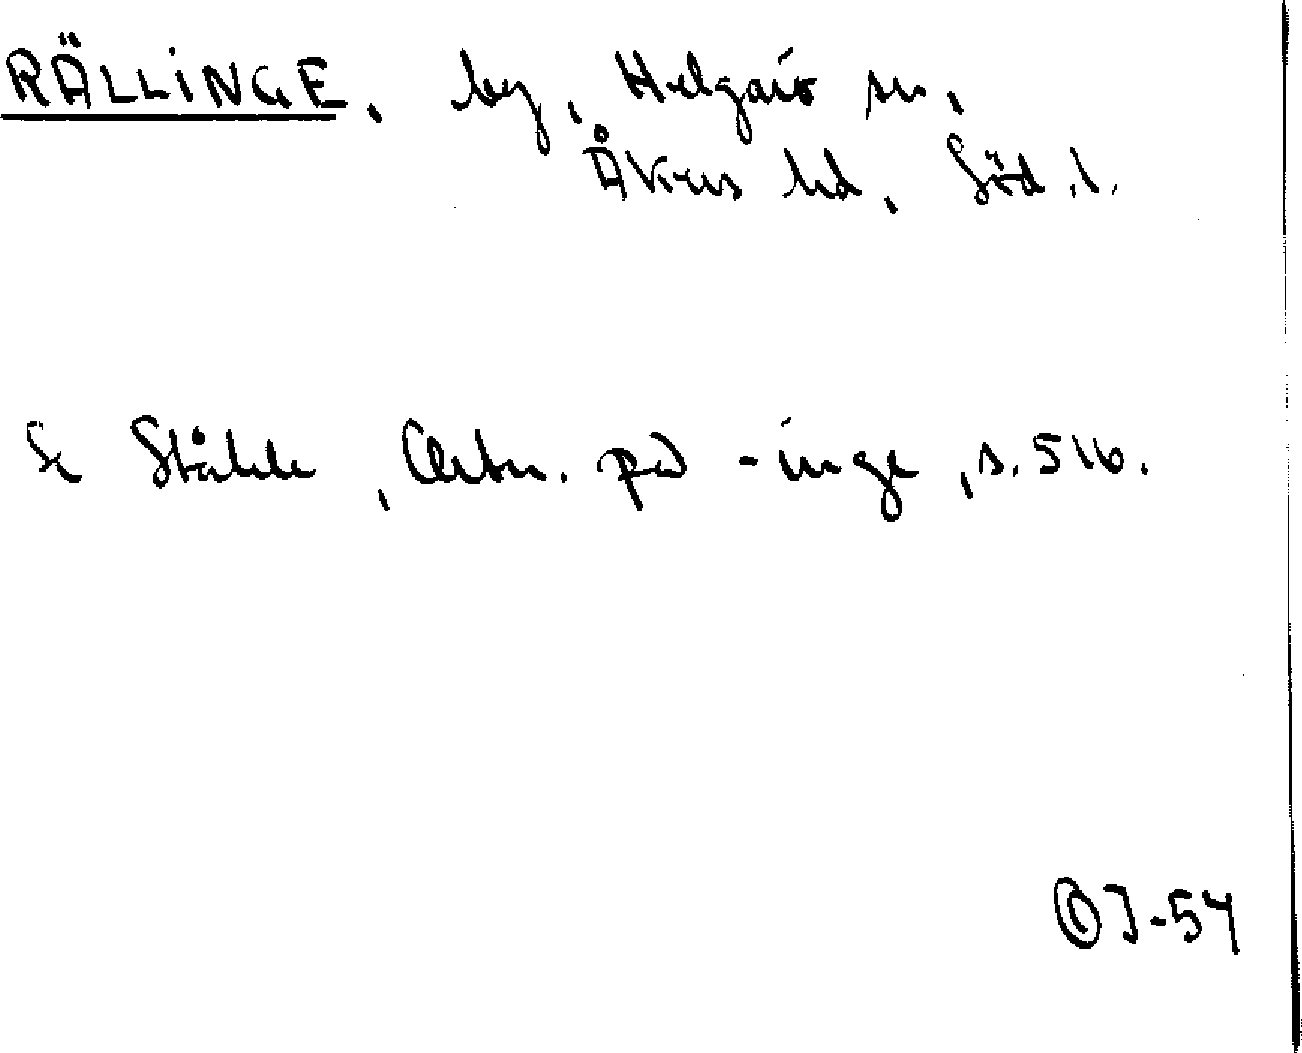 RÄLLINGE, by, Helgarö sn,
Åkers hd, Söd.l.
Se Ståhle, Ortn. på -inge, s. 516.
ОJ-54